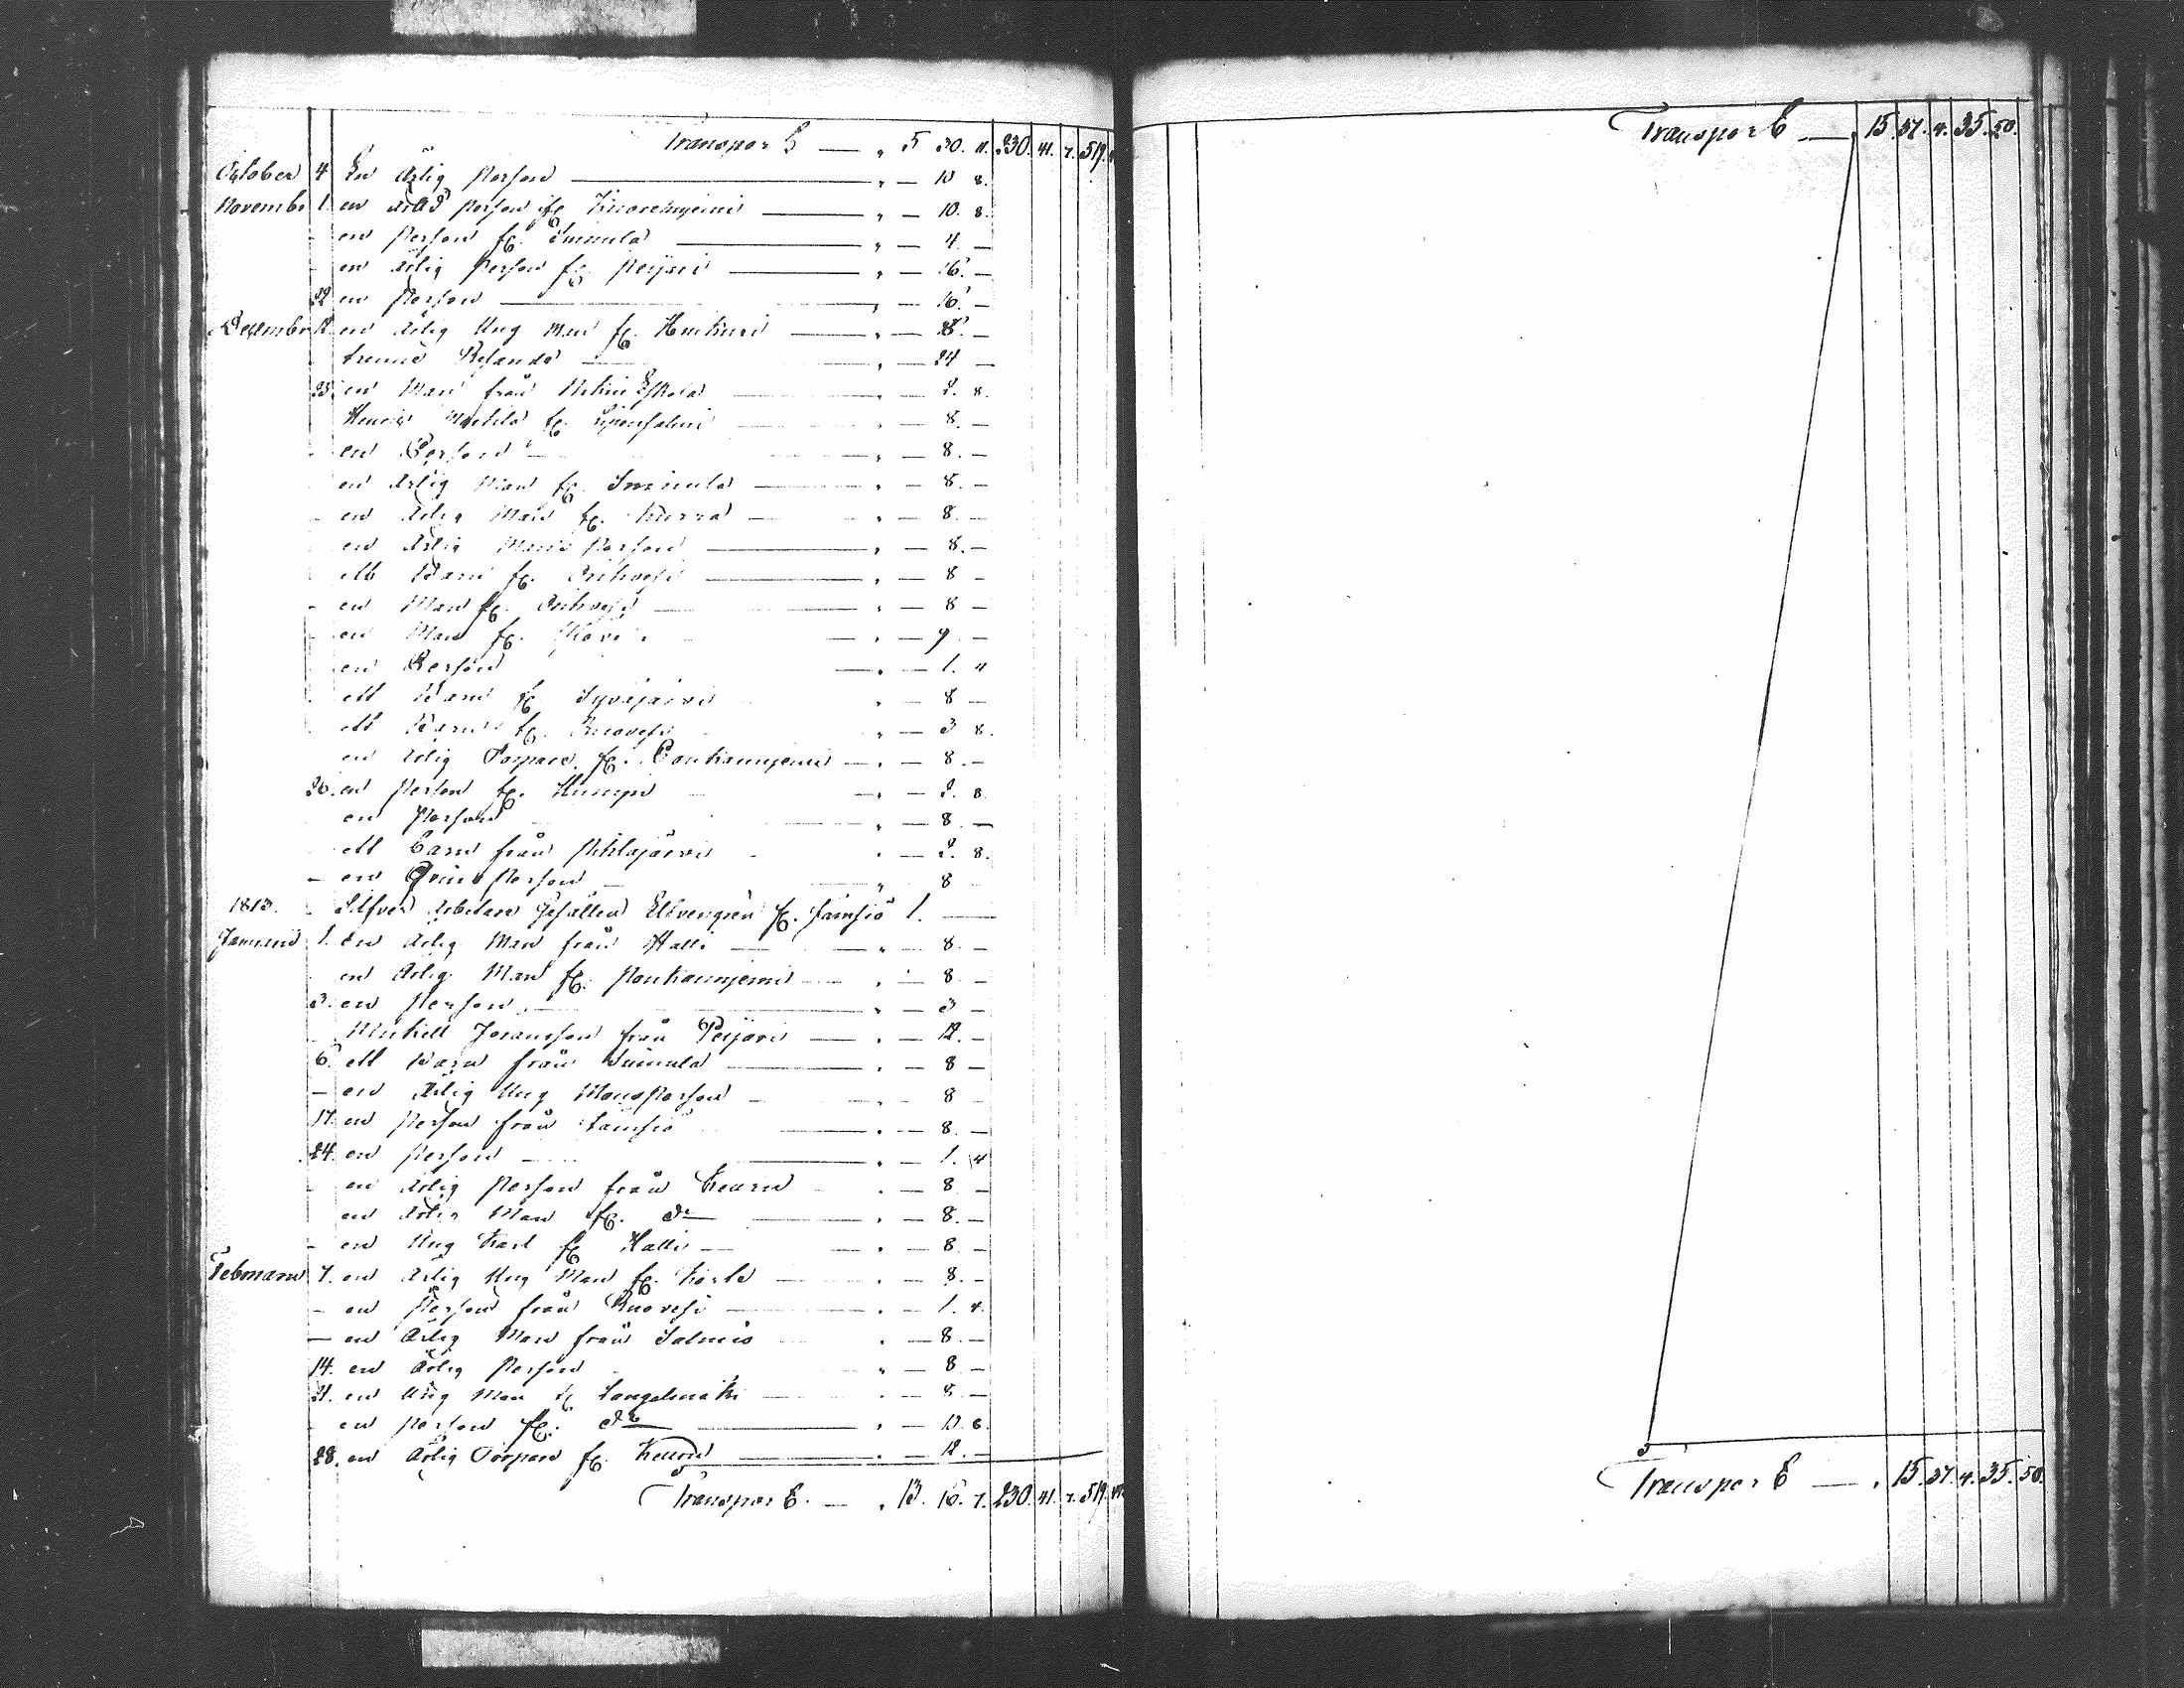 Transport — " 5 30. 11. 230. 41. 7. 519.
October 4 En ärlig Person — " — 10 8.
Novembr 1. en ärlig Person fr. Kuorehniemi — " — 10. 8.
- en Person fr. Suinula — " — 4. —
- en ärlig Person fr. Peijari — " — 16. —
22 en Person — " — 16. —
Decembr en ärlig Ung Man fr. — " — 8. —
trenne Resande — " — 24 —
25. en Man från Eskola — " — 2. 8.
Henric fr. — " — 8. —
- en Person — " — 8. —
en ärlig Man fr. Suinula — " — 8. —
- en ärlig Man fr. — " — 8. —
en ärlig Mans Person — " — 8. —
ett Barn fr. Orihvesi — " — 8 —
- en Man fr. Orihvesi — " — 8 —
- en Man fr. — " — 9 —
- en Person — " — 1. 4
- ett Barn fr. Syväjärvi " — 8 —
ett Barn fr. Ruovesi " — 3 8.
en ärlig Torpare fr. Pouhanniemi — " — 8. —
26. en Person fr. — " — 2. 8.
en Person — " — 8. —
ett Barn från Pihlajärvi " — 2. 8.
- en Qvins Person — " 8
1813. - Silfver Arbetare Gesällen Elfvengren fr. Jämsiö 1. —
Januarii 1. En ärlig Man från Halli — " — 8. —
en ärlig Man fr. Pouhanniemi — " — 8. —
3. en Person — " — 3 —
Michell Joransson från Peijari — " — 12. —
6. ett Barn från Suinula — " — 8 —
- en ärlig Ung Mansperson — " — 8
17. en Person från Jämsiö — " — 8. —
24. en Person — " — 1. 4
- en ärlig Person från Keuru — " — 8 —
- en ärlig Man fr. do — " — 8. —
- en Ung Karl fr. Halli — " — 8. —
Februarii 7. en ärlig Ung Man fr. — " — 8. —
- en Person från Ruovesi — " — 1. 4.
- en ärlig Man från — " — 8. —
14. en ärlig Person — " — 8 —
21. en Ung Man fr. Längelmäki — " — 8 —
- en Person fr. do — " — 6.
28. en ärlig Torpare fr. Keuru — " — 12. —
Transport — " 13. 16. 7. 230. 41. 7. 519.
Transport — " 15. 37. 4. 35. 50.
Transport — " 15. 37. 4. 35. 50.